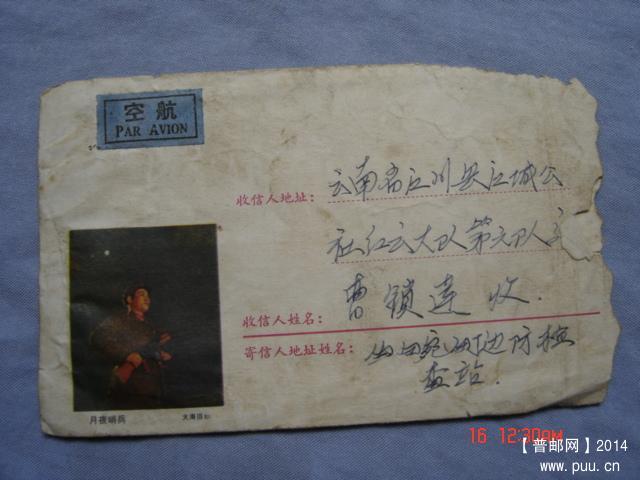 空航
PAR AVION
收信人地址：云南省江川县江城公
社红云大队第六队
收信人姓名：曹锁莲 收.
寄信人地址姓名：畹町边防检
查站.
月夜哨兵
16 12:30AM
【普邮网】2014
www.puu.cn